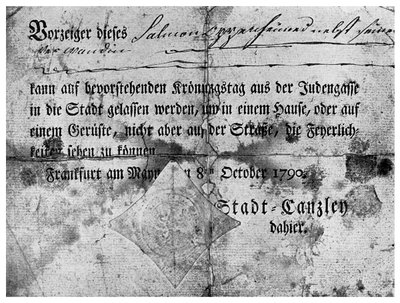 Vorzeiger dieses Salmon Oppenheimer nebst seiner
kann auf bevorstehenden Krönungstag aus der Judengasse
in die Stadt gelassen werden, um in einem Hause, oder auf
einem Gerüste, nicht aber auf der Straße, die Feyerlich-
keiten sehen zu können.
Frankfurt am Mayn 8ten October 1790.
Stadt-Canzley
dahier.